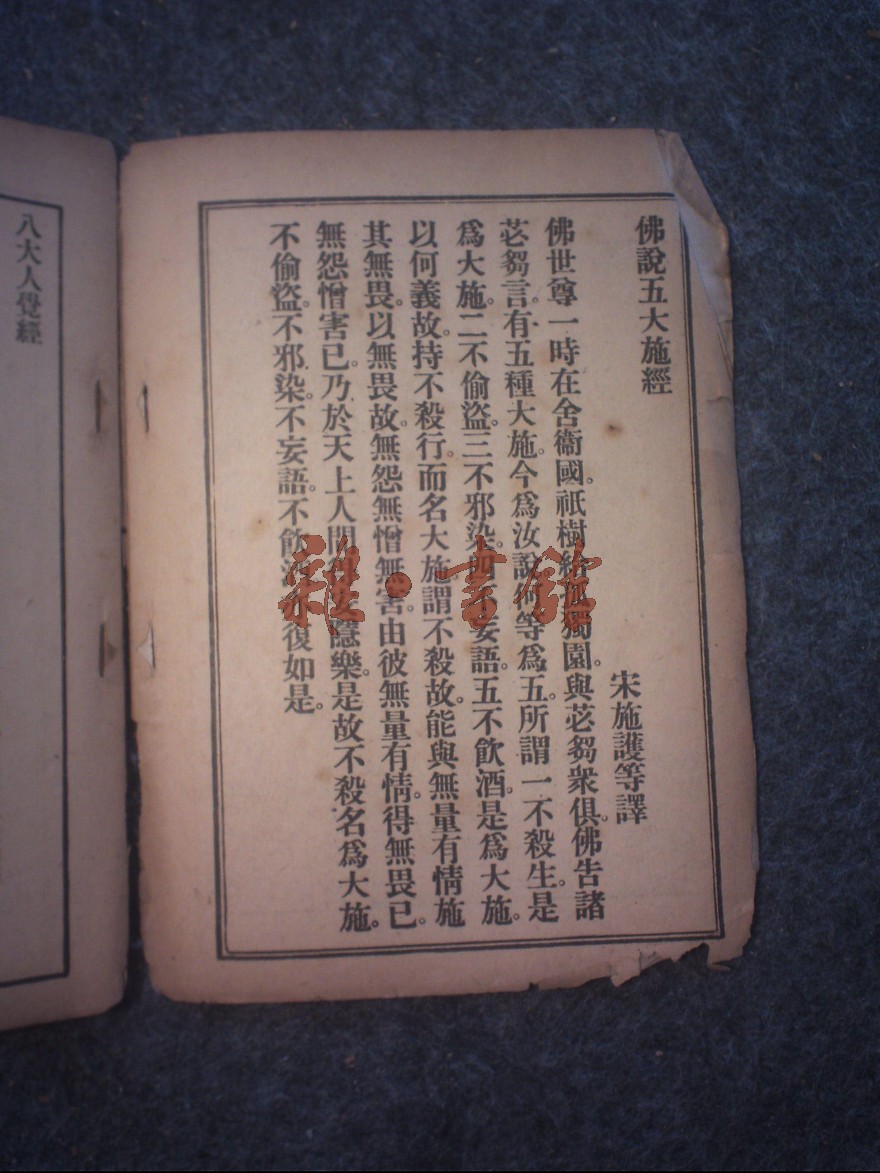 佛說五大施經
宋施護等譯
佛世尊一時在舍衞國。祇樹給孤獨園。與苾芻衆俱。佛告諸
苾芻言。有五種大施。今爲汝說。何等爲五。所謂一不殺生。是
爲大施。二不偷盜。三不邪染。四不妄語。五不飮酒。是爲大施。
以何義故。持不殺行。而名大施。謂不殺故。能與無量有情施
其無畏。以無畏故。無怨無憎無害。由彼無量有情。得無畏已。
無怨憎害已。乃於天上人間隱樂。是故不殺名爲大施。
不偷盜。不邪染。不妄語。不飮復如是。
八大人覺經
雜·書館